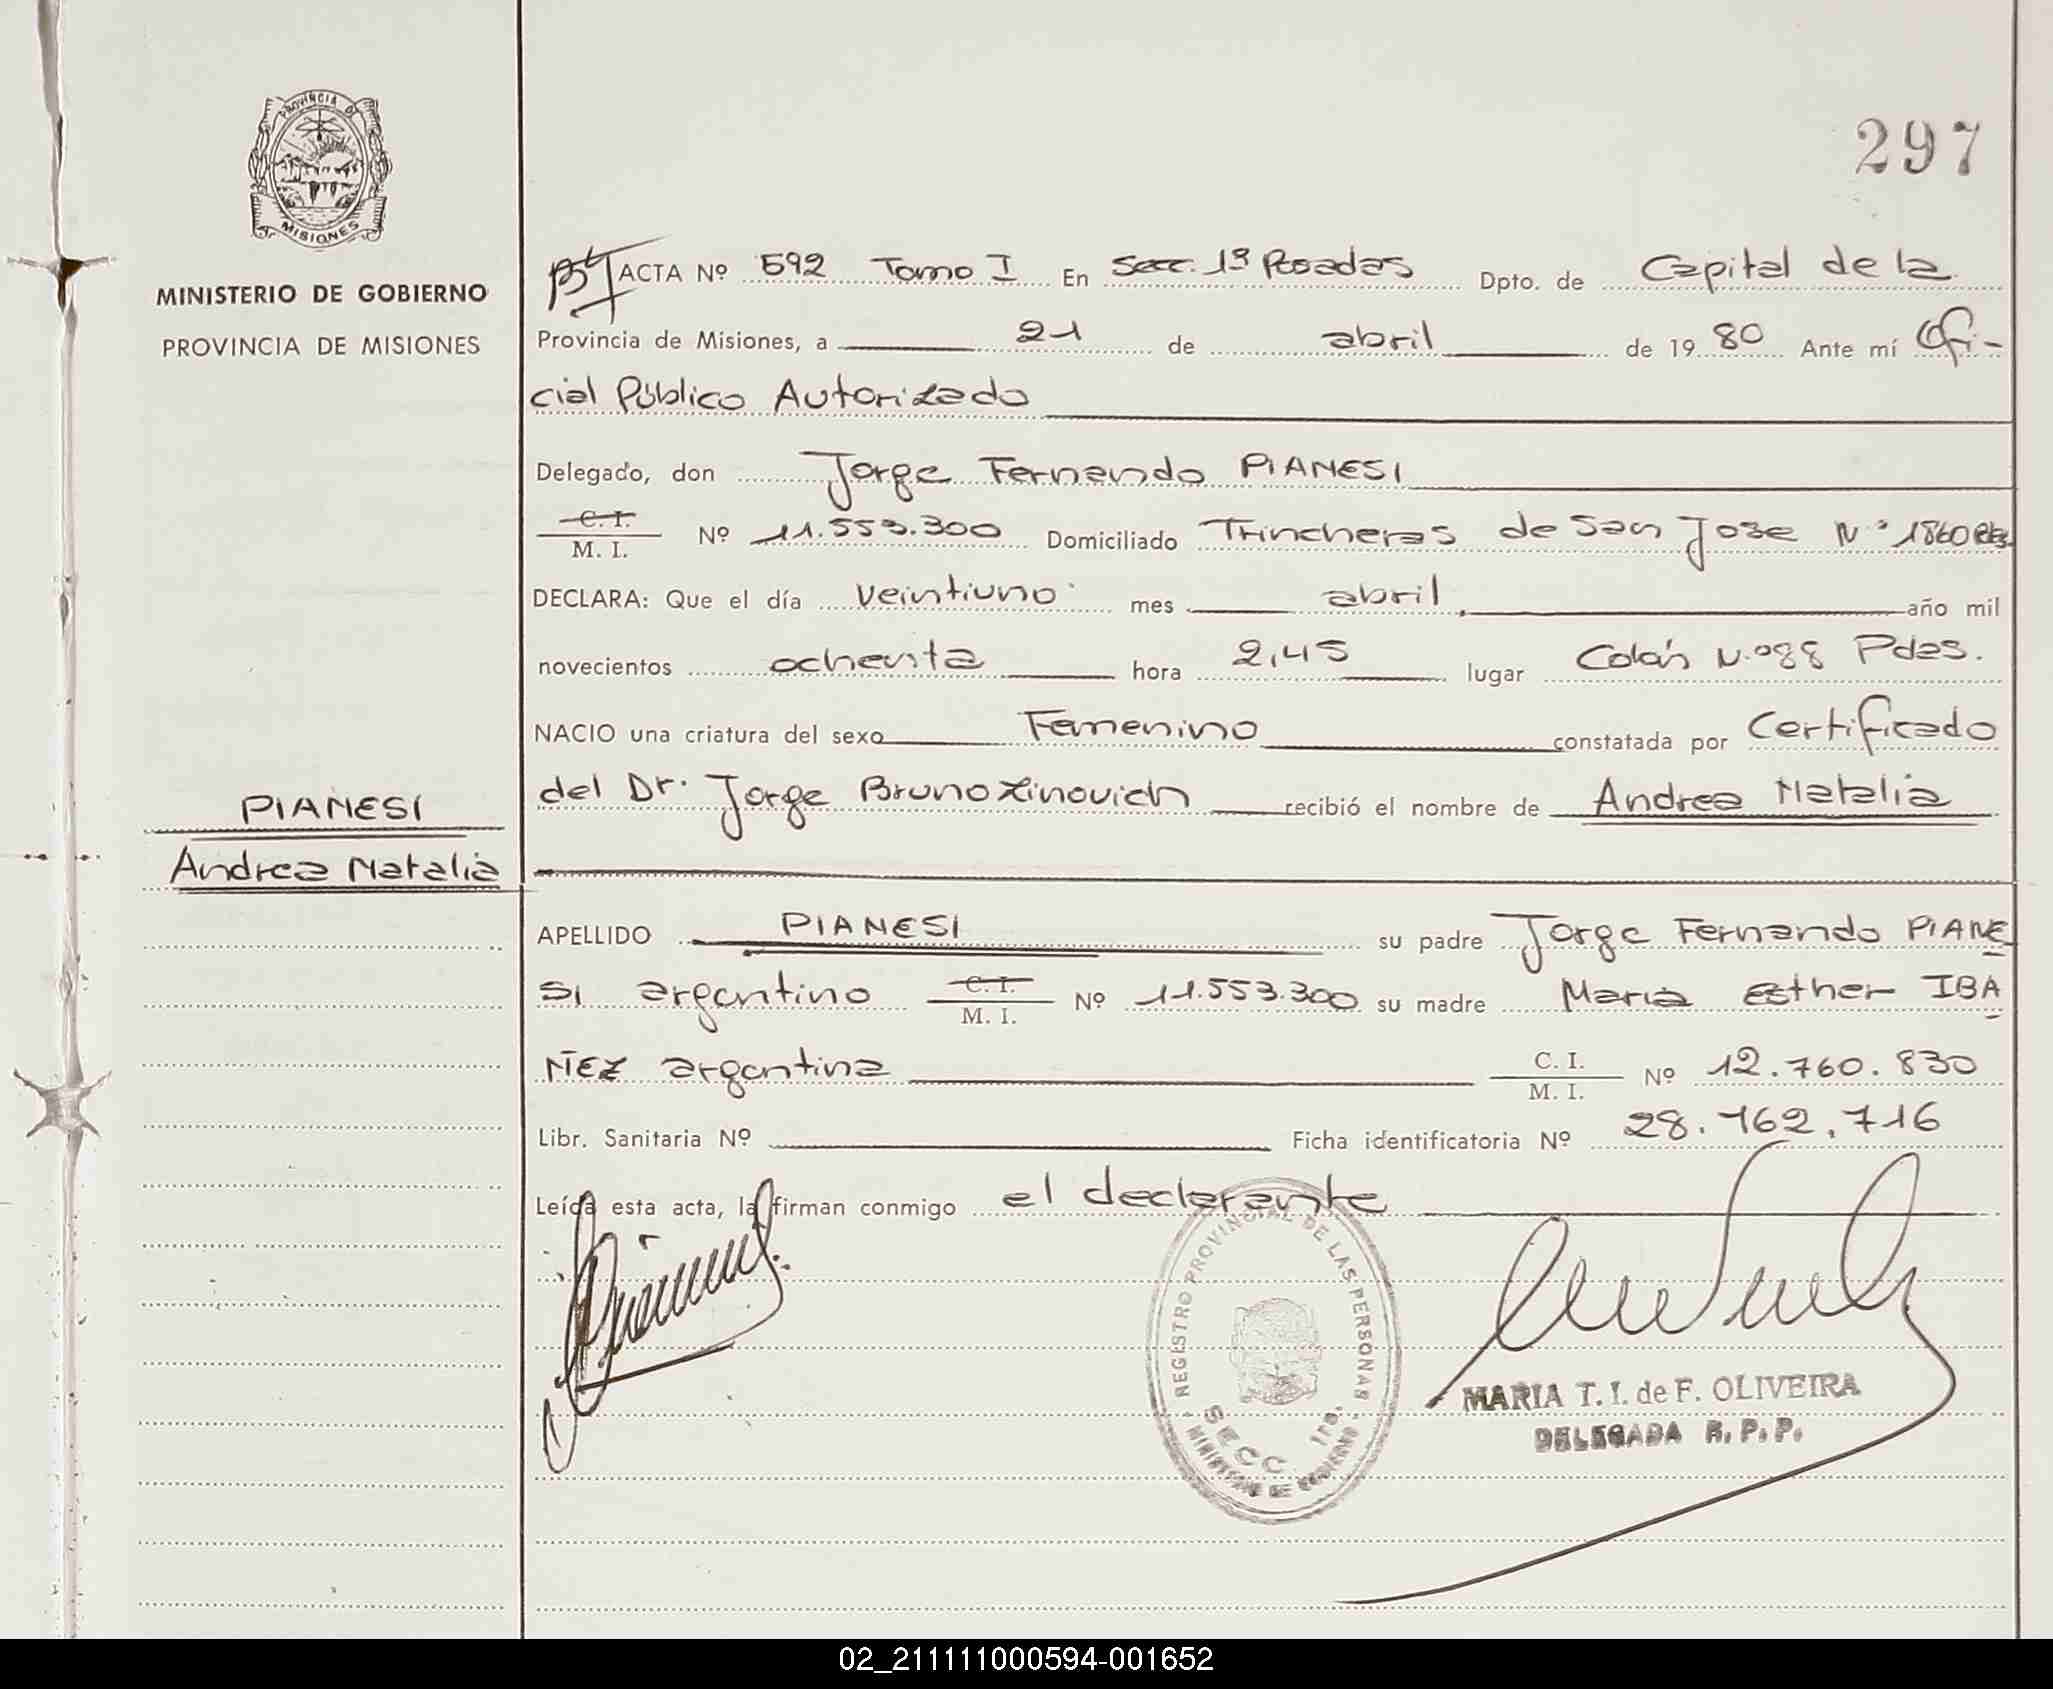 PROVINCIA DE
MISIONES
MINISTERIO DE GOBIERNO
PROVINCIA DE MISIONES
297
ACTA Nº 592 Tomo I En Secc. 1ª Posadas Dpto. de Capital de la
Provincia de Misiones, a 21 de abril de 1980 Ante mí Ofi-
cial Público Autorizado
Delegado, don Jorge Fernando PIANESI
C. I.
M. I. Nº 11.553.300 Domiciliado Trincheras de San Jose Nº 1860 Pds.
DECLARA: Que el día veintiuno mes abril, año mil
novecientos ochenta hora 2,45 lugar Colón N.º 88 Pdas.
NACIO una criatura del sexo Femenino constatada por Certificado
del Dr. Jorge Bruno Zinovich recibió el nombre de Andrea Natalia
PIANESI
Andrea Natalia
APELLIDO PIANESI su padre Jorge Fernando PIANE
SI argentino C. I.
M. I. Nº 11.553.300 su madre Maria Esther IBA
ÑEZ argentina C. I.
M. I. Nº 12.760.830
Libr. Sanitaria Nº Ficha identificatoria Nº 28.162.716
Leída esta acta, la firman conmigo el declarante
REGISTRO PROVINCIAL DE LAS PERSONAS
SECC. 1ra.
MINISTERIO DE GOBIERNO
MARIA T. I. de F. OLIVEIRA
DELEGADA R. P. P.
02_211111000594-001652